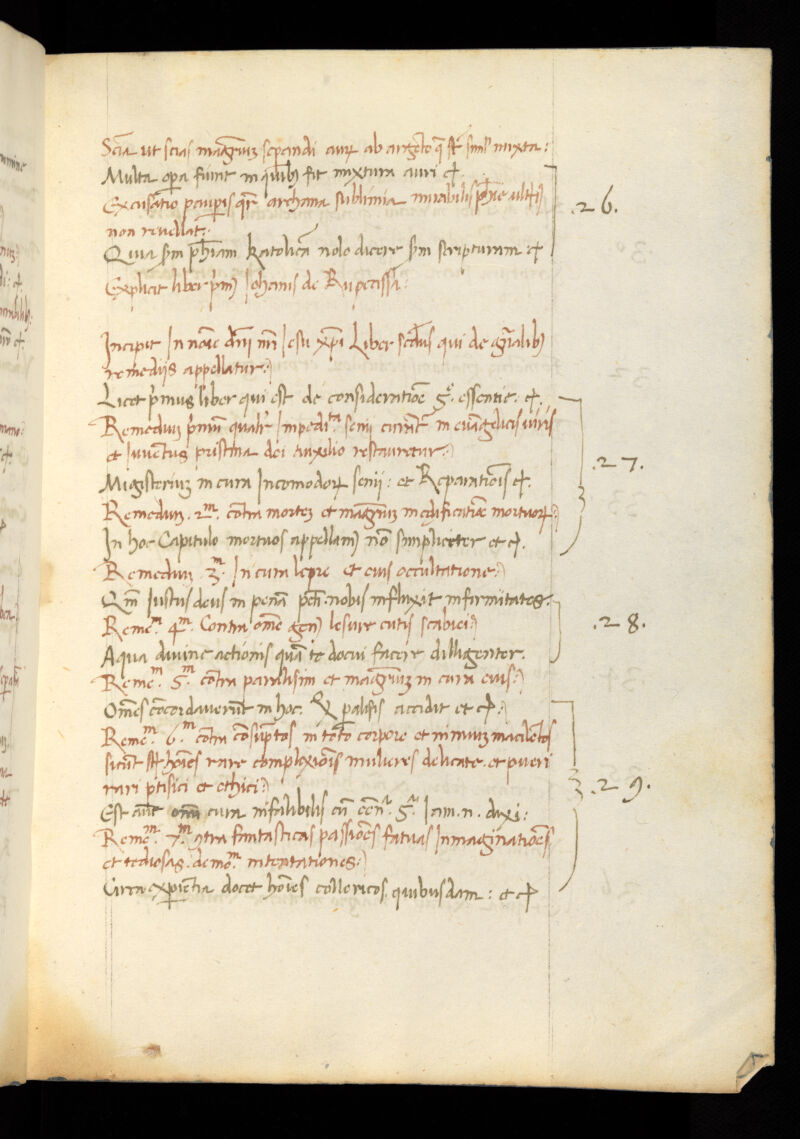 Scīa ut scias magr̄ium sepandi auȝ ab argēto q̄ st̄ siml' mixta:
Multa opa fiunt in quibȝ fit mixtura auri et̄.
Excusatio paupis qr̄ archana sublimia mirabilis ph̄ie
non reuellat:
26.
Quia sm̄ ph̄iam katolicā nolo dicere sm̄ scripturam et̄
Explicit liber p̄mȝ Iohanis de Rupecissa:
Incipit In noīe dn̄i nr̄i Iesu xp̄i Liber scd̄us qui de gn̄alibȝ
remediis appellatur:
Licet p̄mus liber qui est de consideratiōe 5ᵉ. essentie. et̄.
Remedium p̄mum qualr̄ senii curent̄ in euāgelicis uiris
et Iuuentus pristina dei Auxilio restauretur:
27.
Magisterium in cura Incomodoȝ senii: et Reparatiōis et̄.
Remedium. 2ᵐ. cōtra mortem et magr̄ium mortuoȝ:
In hoc Capitulo mortuos appellamȝ nō simpliciter et et̄.
Remedium 3ᵐ. In cura lepre et eius occultatione:
Qm̄ Iustus deus in penā pcti nobis influxit infirmitates.
Remeᵐ. 4ᵐ. Contra om̄e genȝ lesure cutis scabiei:
28.
Aqua diuine actionis quā te docui facere diligenter.
Remeᵐ. 5ᵐ. cōtra paralisim et magr̄ium in cura eius:
Om̄es cōcordauerūt in hoc. Qȝ paralisis accidit et et̄:
Remeᵐ. 6ᵐ. cōtra cōsūptos in toto corpore et nimium macilētos
sicut st̄ hoīes rare complexiōis mulieres delicate. et pueri
rari ptisici et ethici:
29.
Est aut̄ cura infalibilis cū 5ᵉ Iam. n. dixi:
Remeᵐ. 7ᵐ. 9tra fantasticas passiōes fatuas Inmaginatiōes
et tediosas. demoᵐ. intentationes:
Circa experiētia docet hoīes collericos quibusdam: et et̄